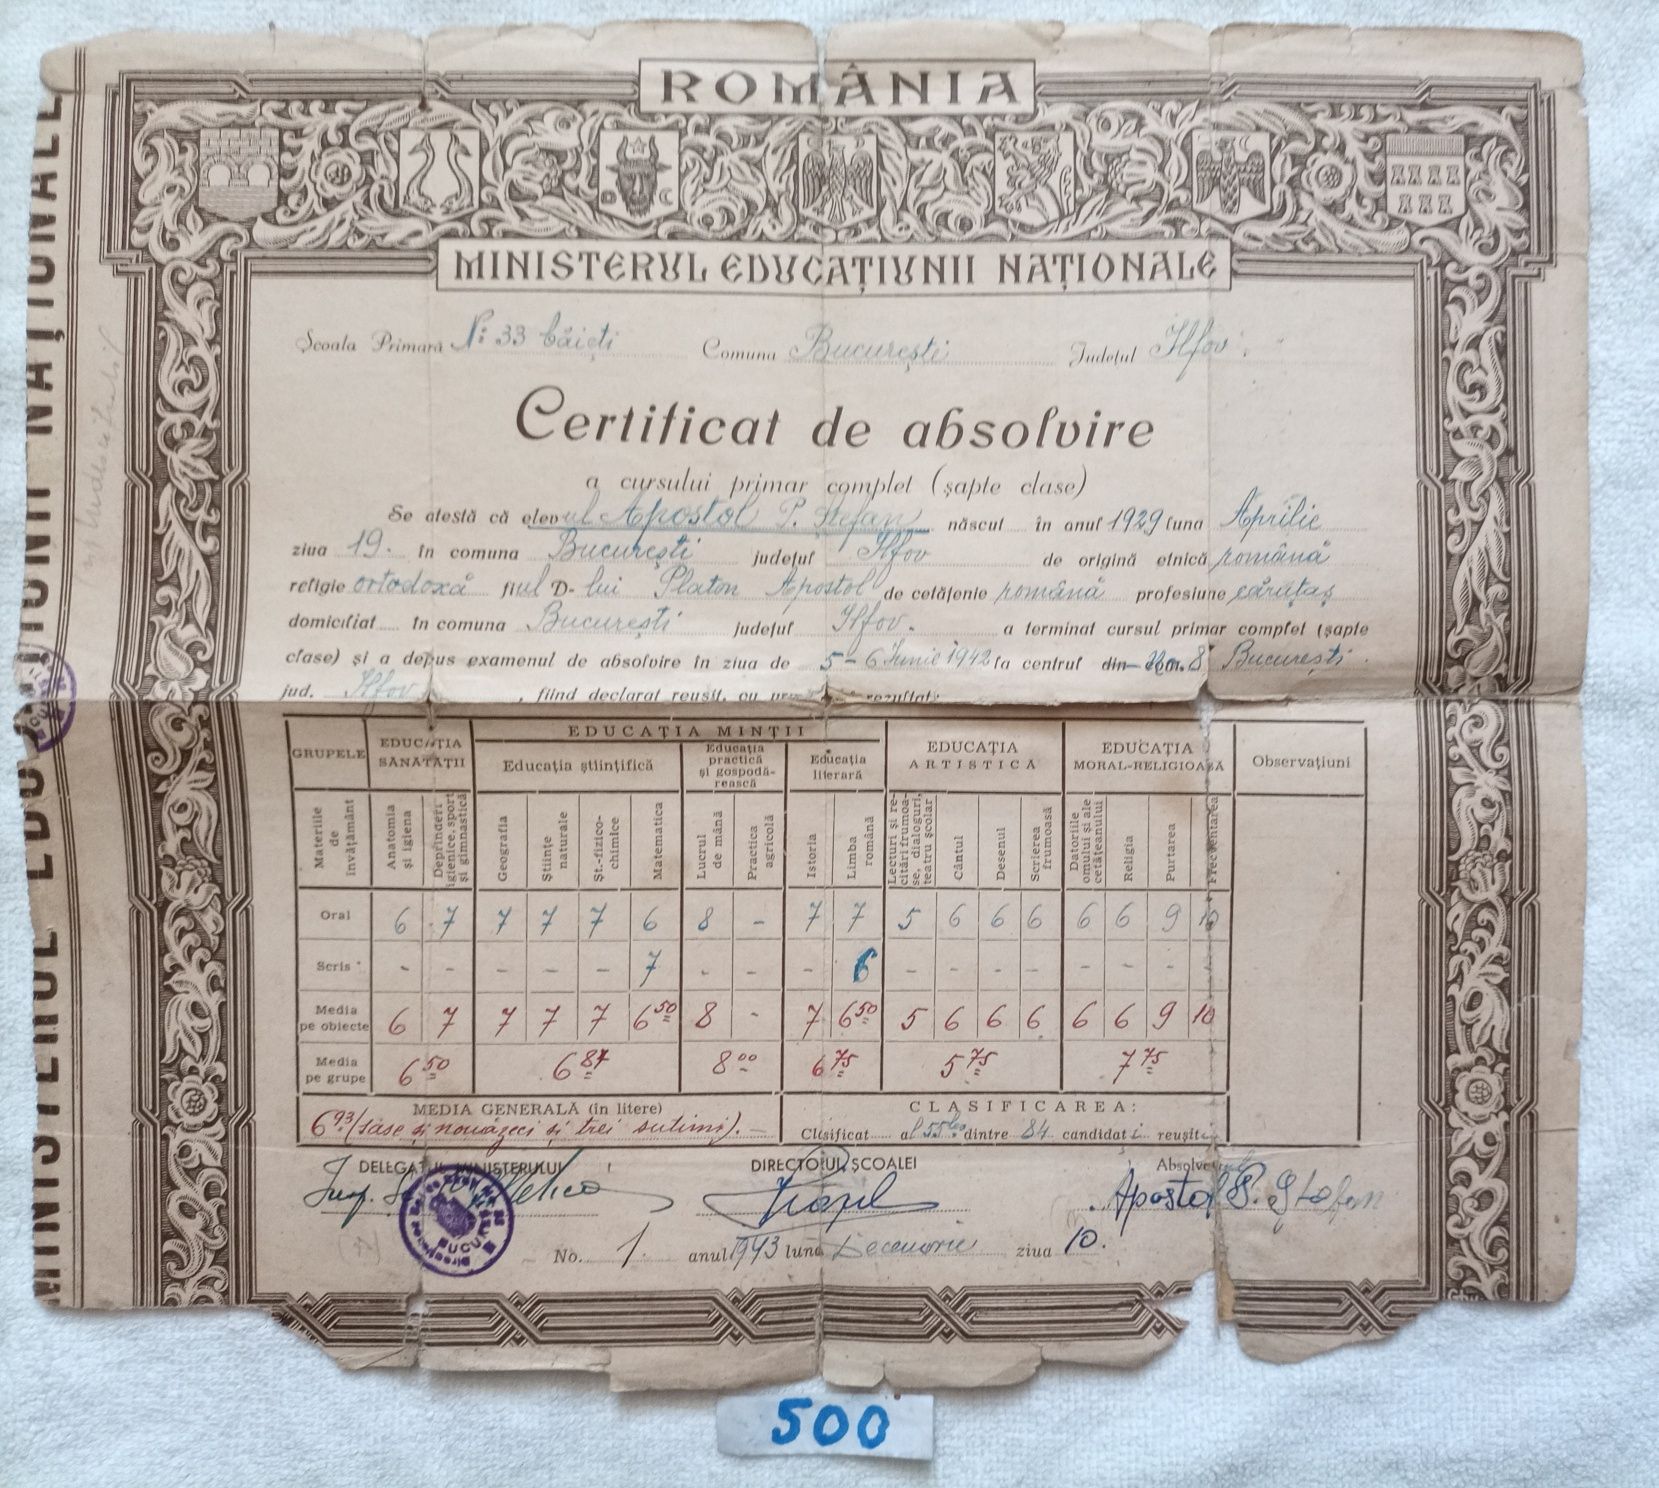 ROMÂNIA
MINISTERUL EDUCAȚIUNII NAȚIONALE
Școala Primară No 33 băieți Comuna București Județul Ilfov.
Certificat de absolvire
a cursului primar complet (șapte clase)
Se atestă că elevul Apostol P. Ștefan născut în anul 1929 luna Aprilie
ziua 19. în comuna București județul Ilfov de origină etnică română
religie ortodoxă fiul D-lui Platon Apostol de cetățenie română profesiune cărăuș
domiciliat în comuna București județul Ilfov. a terminat cursul primar complet (șapte
clase) și a depus examenul de absolvire în ziua de 5-6 Iunie 1942 la centrul din 8 București
jud. Ilfov, fiind declarat reușit, cu rezultat:
GRUPELE EDUCAȚIA SĂNĂTĂȚII EDUCAȚIA MINȚII EDUCAȚIA ARTISTICĂ EDUCAȚIA MORAL-RELIGIOASĂ Observațiuni
Educația științifică Educația practică și gospodărească Educația literară
Materiile de învățământ
Anatomia și igiena
Deprinderi igienice, sport și gimnastică
Geografia
Științe naturale
Șt.-fizico-chimice
Matematica
Lucrul de mână
Practica agricolă
Istoria
Limba română
Lecturi și recitări frumoase, dialoguri, teatru școlar
Cântul
Desenul
Scrierea frumoasă
Datoriile omului și ale cetățeanului
Religia
Purtarea
Frecventarea
Oral 6 7 7 7 7 6 8 - 7 7 5 6 6 6 6 6 9 10
Scris - - - - - 7 - - - 6 - - - - - - -
Media pe obiecte 6 7 7 7 7 6 50 8 - 7 6 50 5 6 6 6 6 6 9 10
Media pe grupe 6 50 6 87 8 00 6 75 5 75 7 75
MEDIA GENERALĂ (în litere) CLASIFICAREA:
6 93 (șase și nouăzeci și trei sutimi). Clasificat al 55lea dintre 84 candidați reușiți
DELEGATUL MINISTERULUI DIRECTORUL ȘCOALEI Absolventul
Apostol P. Ștefan
No. 1. anul 1943 luna Decemvrie ziua 10.
MINISTERUL EDUCAȚIUNII NAȚIONALE
500